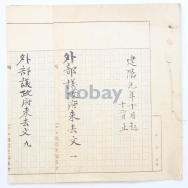 建陽元年十月起
十二月止
外部議政府來去文 一
外部議政府來去文 九
Kobay